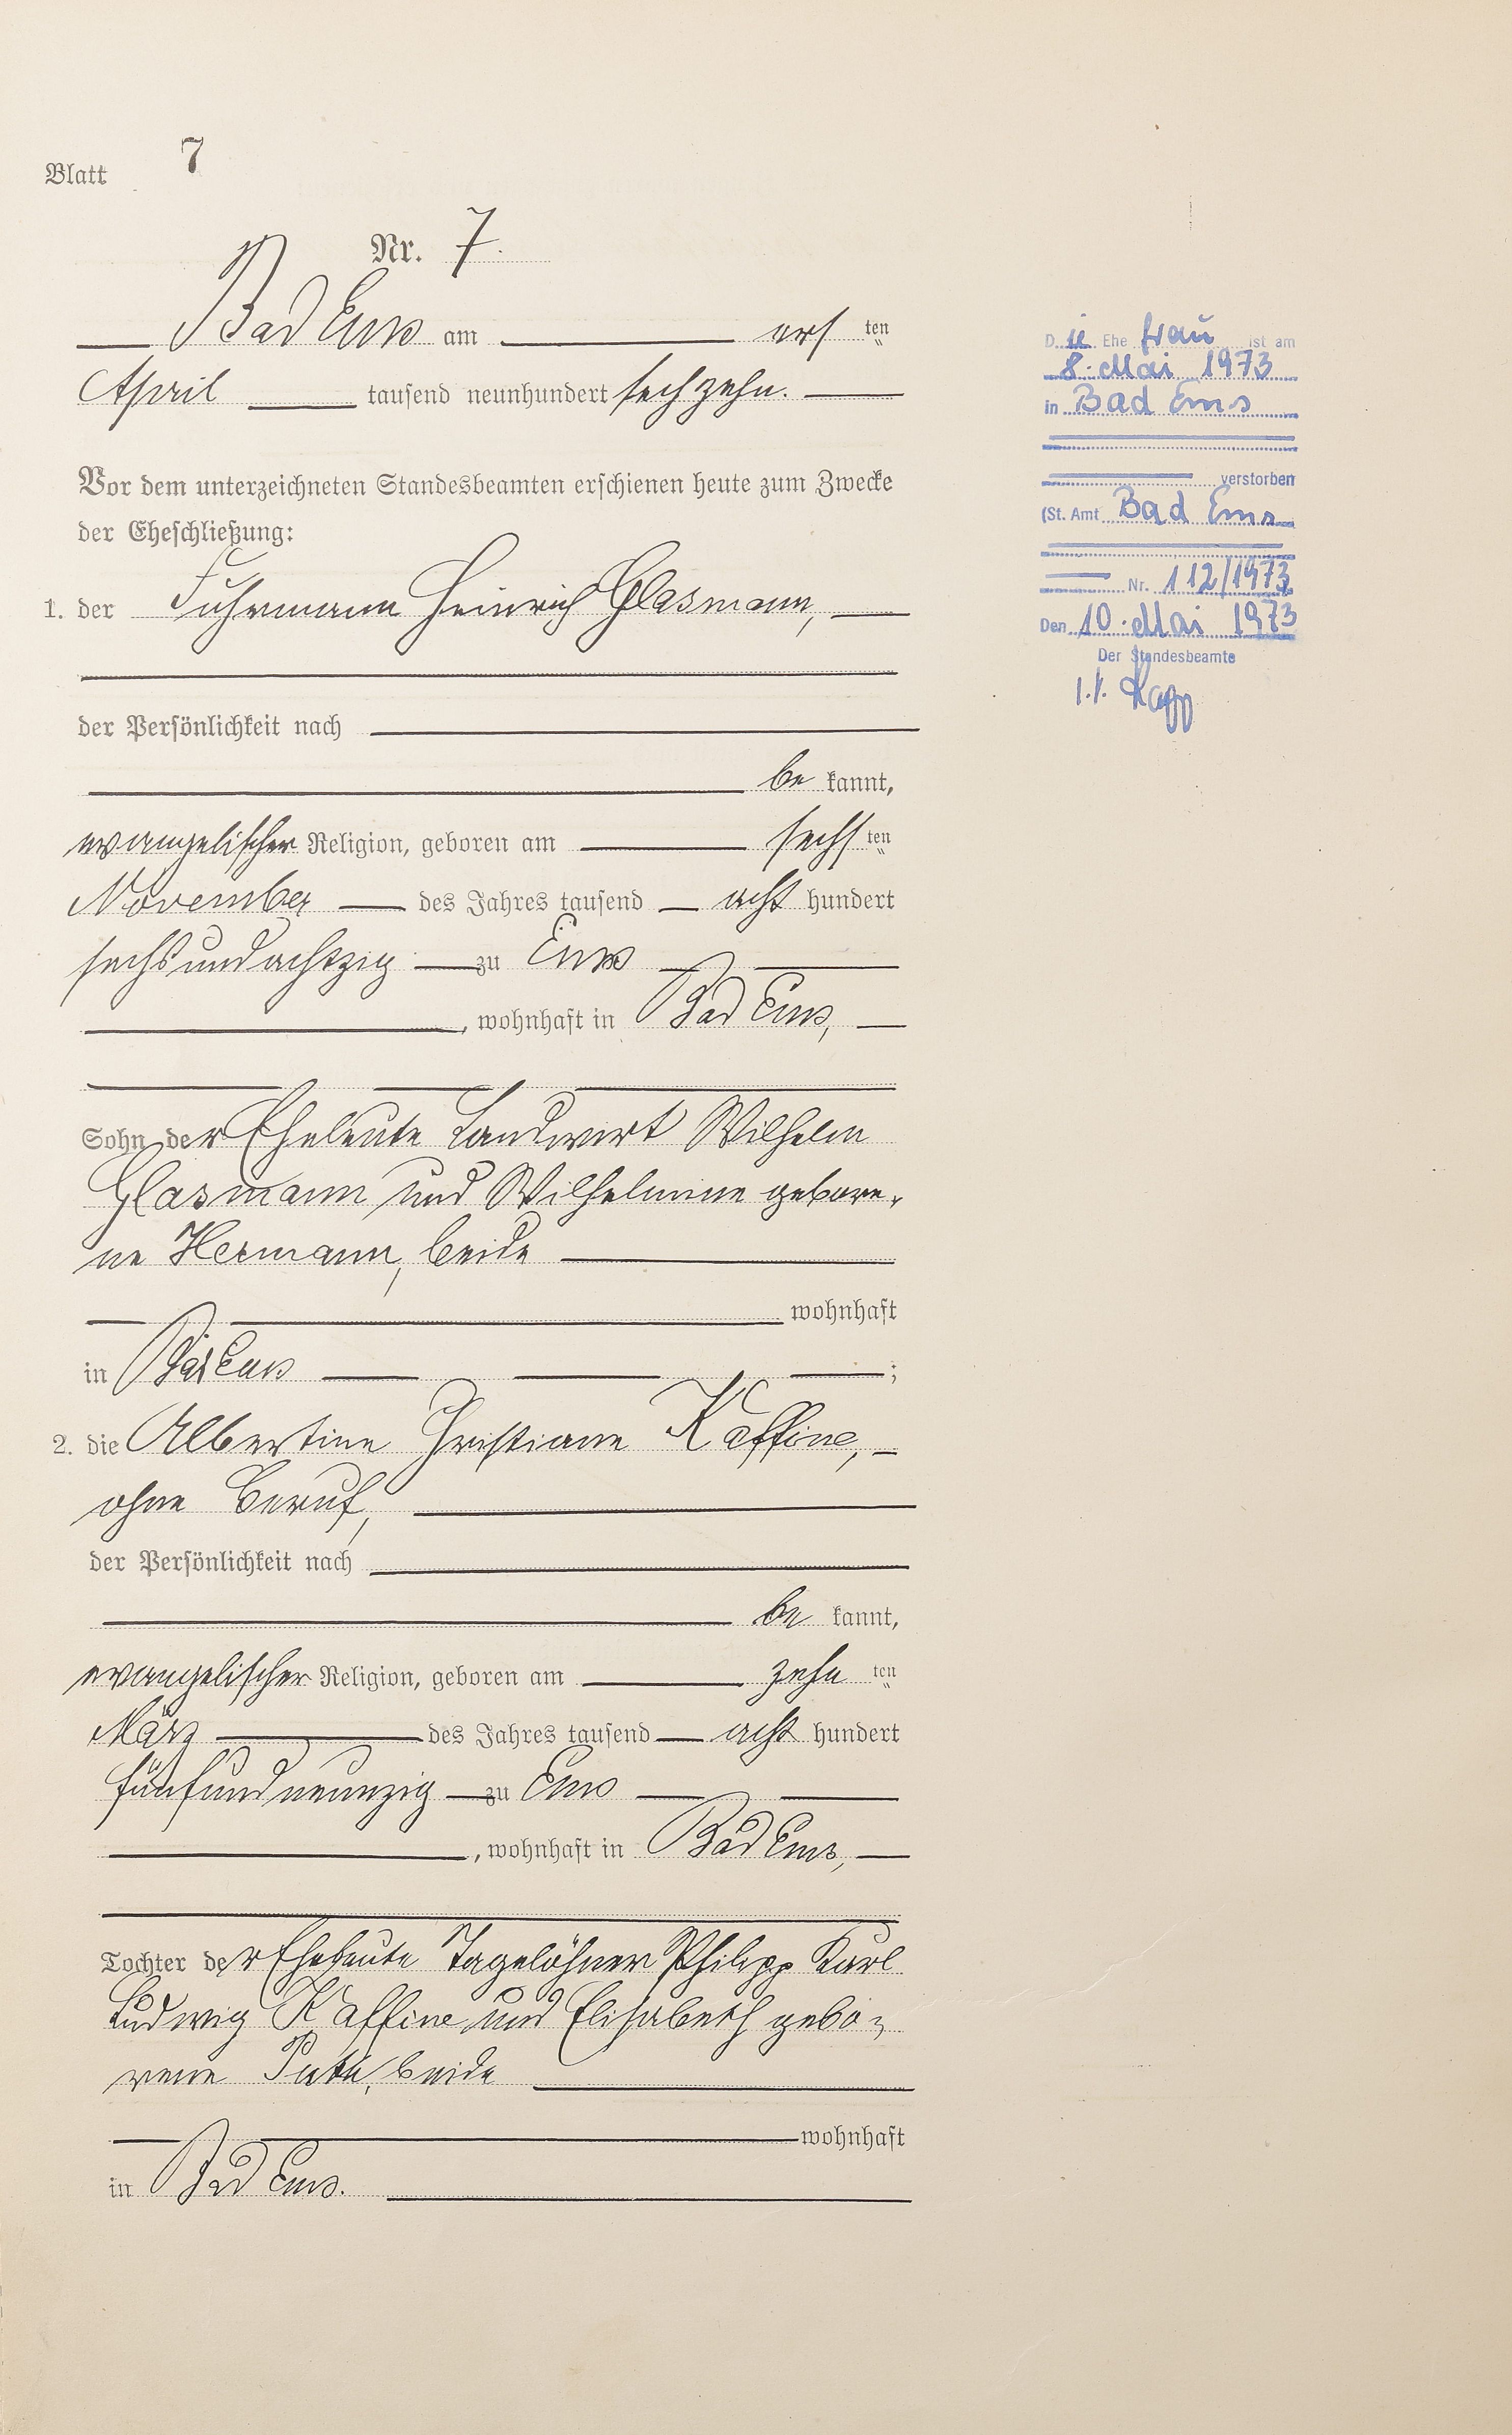 Blatt 7
Nr. 7.
Bad Ems am ersten
April tausend neunhundert sechzehn.
Vor dem unterzeichneten Standesbeamten erschienen heute zum Zwecke
der Eheschließung:
1. der Fuhrmann Heinrich Glasmann,
der Persönlichkeit nach
be kannt,
evangelischer Religion, geboren am sechsten
November des Jahres tausend acht hundert
sechsundachtzig zu Ems
, wohnhaft in Bad Ems,
Sohn der Eheleute Landwirt Wilhelm
Glasmann und Wilhelmine gebore-
ne Hermann, beide
wohnhaft
in Bad Ems ;
2. die Albertine Christiane Kaffine,
ohne Beruf,
der Persönlichkeit nach
be kannt,
evangelischer Religion, geboren am zehnten
März des Jahres tausend acht hundert
fünfundneunzig zu Ems
, wohnhaft in Bad Ems,
Tochter der Eheleute Tagelöhner Philipp Karl
Ludwig Kaffine und Elisabeth gebo-
rene beide
wohnhaft
in Bad Ems.
Die Ehefrau ist am
8. Mai 1973
in Bad Ems
verstorben
(St. Amt Bad Ems
Nr. 112/1973
Den 10. Mai 1973
Der Standesbeamte